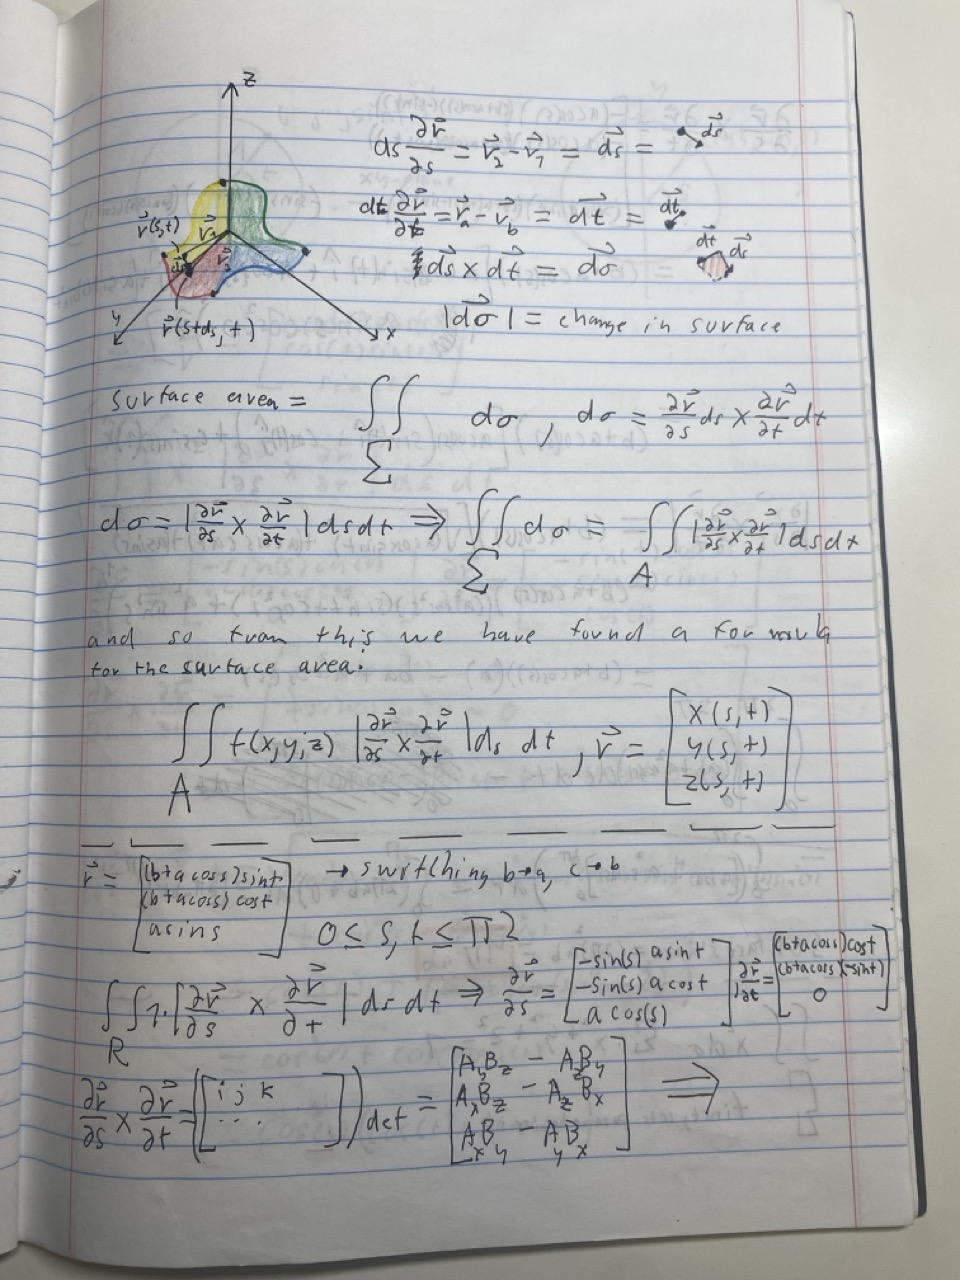 z
ds ∂r⃗/∂s = v⃗₂ - v⃗₁ = d⃗s = d⃗s
dt ∂r⃗/∂t = r⃗ₐ - v⃗_b = d⃗t = d⃗t
r⃗(s,t)
d⃗s × d⃗t = d⃗σ d⃗t d⃗s
y r⃗(s+ds, t) x
|d⃗σ| = change in surface
surface area = ∬_Σ dσ , dσ = ∂r⃗/∂s ds × ∂r⃗/∂t dt
dσ = |∂r⃗/∂s × ∂r⃗/∂t| ds dt ⇒ ∬_Σ dσ = ∬_A |∂r⃗/∂s × ∂r⃗/∂t| ds dt
and so from this we have found a formula
for the surface area.
∬_A f(x,y,z) |∂r⃗/∂s × ∂r⃗/∂t| ds dt , r⃗ = [x(s,t) y(s,t) z(s,t)]
r⃗ = [(b+a cos s) sin t (b+a cos s) cos t a sin s] → switching b→a, c→b
0 ≤ s, t ≤ π2
∬_R 1·|∂r⃗/∂s × ∂r⃗/∂t| ds dt ⇒ ∂r⃗/∂s = [-sin(s) a sin t -sin(s) a cos t a cos(s)] , ∂r⃗/∂t = [(b+a cos s) cos t (b+a cos s)(-sin t) 0]
∂r⃗/∂s × ∂r⃗/∂t = ([i j k ...]) det = [A_yB_z - A_zB_y A_xB_z - A_zB_x A_xB_y - A_yB_x] ⇒